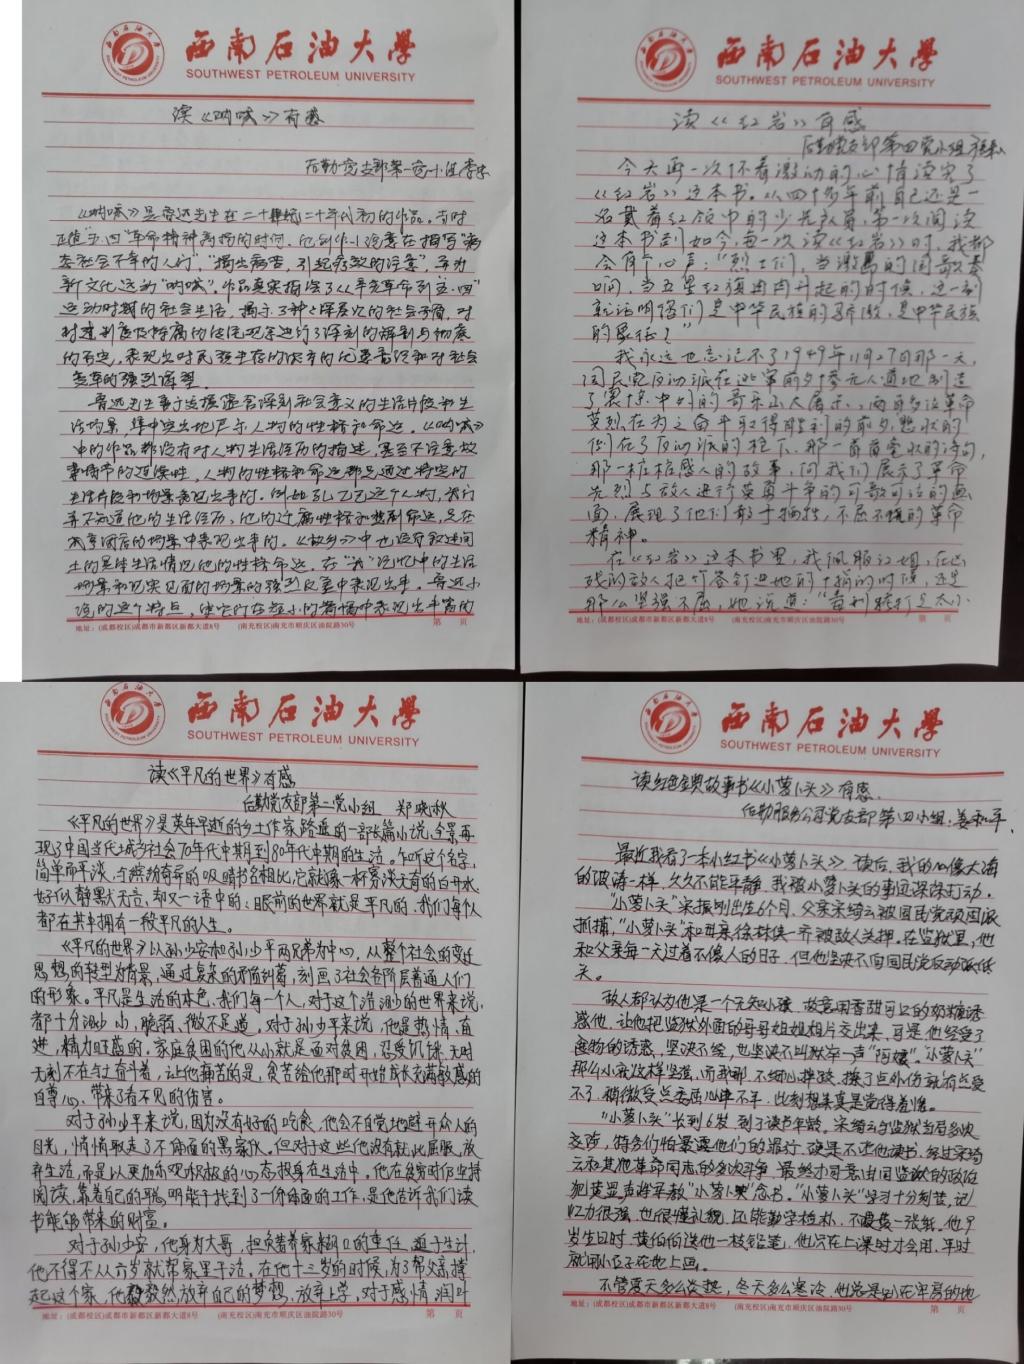 西南石油大学
SOUTHWEST PETROLEUM UNIVERSITY
读《呐喊》有感
后勤党支部第一党小组 李
《呐喊》是鲁迅先生在二十世纪二十年代初的作品。当时
正值五四革命精神高扬的时间，他创作小说意在描写"病
态社会不幸的人们"，"揭出病苦，引起疗救的注意"，并为
新文化运动"呐喊"。作品真实描绘了从辛亥革命到五四"
运动时期的社会生活，揭示了种种深层次的社会矛盾，对
封建制度及腐的传统观念进行了深刻的解剖与彻底
的否定，表现出对民族生存的浓重的忧患意识和对社会
变革的强烈渴望。
鲁迅先生善于发掘蕴含深刻社会意义的生活片段和生
活场景，集中突出地展示人物的性格和命运。《呐喊》
中的作品都没有对人物生活经历的描述，甚至不注意故
事情节的连续性，人物的性格和命运都是通过特定的
生活片段和场景表现出来的。例如孔乙己这个人物，我们
并不知道他的生活经历，他的迂腐性格和悲剧命运，是在
咸亨酒店的场景中表现出来的。《故乡》中也没有叙述闰
土的具体生活情况，他的性格命运，在"我"记忆中的生活
场景和现实见面的场景的强烈反差中表现出来。鲁迅小
说的这个特点，使它们在短小的篇幅中表现出丰富的
地址：(成都校区)成都市新都区新都大道8号 (南充校区)南充市顺庆区油院路30号 第 页
西南石油大学
SOUTHWEST PETROLEUM UNIVERSITY
读《红岩》有感
后勤党支部第四党小组
今天再一次怀着激动的心情读完了
《红岩》这本书。从四十多年前自己还是一
名戴着红领巾的少先队员，第一次阅读
这本书到如今，每一次读《红岩》时，我都
会有个心声："烈士们，当激昂的国歌奏
响，当五星红旗冉冉升起的时候，这一刻
就证明你们是中华民族的骄傲，是中华民族
的象征！"
我永远也忘记不了1949年11月27日那一天，
国民党反动派在逃窜前夕惨无人道地制造
了震惊中外的哥乐山大屠杀，两百多位革命
英烈在为之奋斗取得胜利的前夕，悲壮的
倒在了反动派的枪下，那一首首壮的诗句，
那一桩桩感人的故事，向我们展示了革命
先烈与敌人进行英勇斗争的可歌可泣的画
面，展现了他们敢于牺牲，不屈不挠的革命
精神。
在《红岩》这本书里，我佩服江姐，在凶
残的敌人把竹签钉进她的十指的时候，还是
那么坚强不屈，她说道："毒刑拷打是太小
地址：(成都校区)成都市新都区新都大道8号 (南充校区)南充市顺庆区油院路30号 第 页
西南石油大学
SOUTHWEST PETROLEUM UNIVERSITY
读《平凡的世界》有感
后勤党支部第二党小组 郑晓秋
《平凡的世界》是英年早逝的乡土作家路遥的一部长篇小说，全景再
现了中国当代城乡社会70年代中期到80年代中期的生活。乍听这个名字，
简单而平淡，与缤纷奇异的吸睛书名相比，它就像一杯寡淡无奇的白开水，
好似静默无言，却又一语中的：眼前的世界就是平凡的，我们每个人
都在其中拥有一段平凡的人生。
《平凡的世界》以孙少安和孙少平两兄弟为中心，从整个社会的变迁
思想的转型为背景，通过复杂的矛盾纠葛，刻画了社会各阶层普通人们
的形象。平凡是生活的本色，我们每一个人，对于这个浩渺的世界来说，
都十分渺小，脆弱、微不足道。对于孙少平来说，他是热情、直
进，精力旺盛的，家庭贫困的他从小就是面对贫困，忍受饥饿，无时
无刻不在与之奋斗着，让他痛苦的是，贫苦给他那时开始成长充满敏感的
自尊心，带来了看不见的伤害。
对于孙少平来说，因为没有好的吃食，他会不自觉地避开众人的
目光，悄悄取走了不体面的黑家伙。但对于这些他没有就此屈服，放
弃生活，而是以更加乐观积极的心态投身在生活中。他在贫穷时但坚持
阅读，靠着自己的聪明能干找到了一份体面的工作，是他告诉我们读
书能够带来的财富。
对于孙少安，他身为大哥，担负着养家糊口的责任，迫于生计，
他不得不从六岁就帮家里干活。在他十三岁的时候，为了帮父亲撑
起这个家，他毅然放弃自己的梦想，放弃上学，对于感情，润叶
地址：(成都校区)成都市新都区新都大道8号 (南充校区)南充市顺庆区油院路30号 第 页
西南石油大学
SOUTHWEST PETROLEUM UNIVERSITY
读红色经典故事书《小萝卜头》有感
后勤服务公司党支部第四小组：姜和平
最近我看了一本小红书《小萝卜头》，读后，我的心像大海
的波涛一样，久久不能平静，我被小萝卜头的事迹深深打动。
"小萝卜头"宋振刚出生6个月，父亲宋绮云被国民党顽固派
抓捕，"小萝卜头"和母亲徐林侠一齐被敌人关押。在监狱里，他
和父亲每一天过着不像人的日子，但他坚决不向国民党反动派低
头。
敌人都认为他是一个无知小孩，故意用香甜可口的奶糖诱
惑他，让他把监狱外面的哥哥姐姐相片交出来，可是，他经受了
食物的诱惑，坚决不给，也坚决不叫狱卒一声"阿姨"。"小萝卜头"
那么小就这样坚强，而我那，不细心摔跤，擦了点外伤就有点受
不了，稍微受点委屈心中不平，此刻想来真是觉得羞愧。
"小萝卜头"长到6岁，到了读书年龄，宋绮云与监狱当局多次
交涉，特务们怕暴露他们的罪行，硬是不让他读书，经过宋绮
云和其他革命同志的多次斗争，最终才同意由同监狱的政治
犯黄显声将军教"小萝卜头"念书。"小萝卜头"学习十分刻苦，记
忆力很强，也很懂礼貌，还能勤学俭朴，不浪费一张纸。他9
岁生日时，黄伯伯送他一枝铅笔，他只在上课时才会用，平时
就用小石子在地上画。
不管夏天多么炎热，冬天多么寒冷，他总是趴在牢房的地
地址：(成都校区)成都市新都区新都大道8号 (南充校区)南充市顺庆区油院路30号 第 页